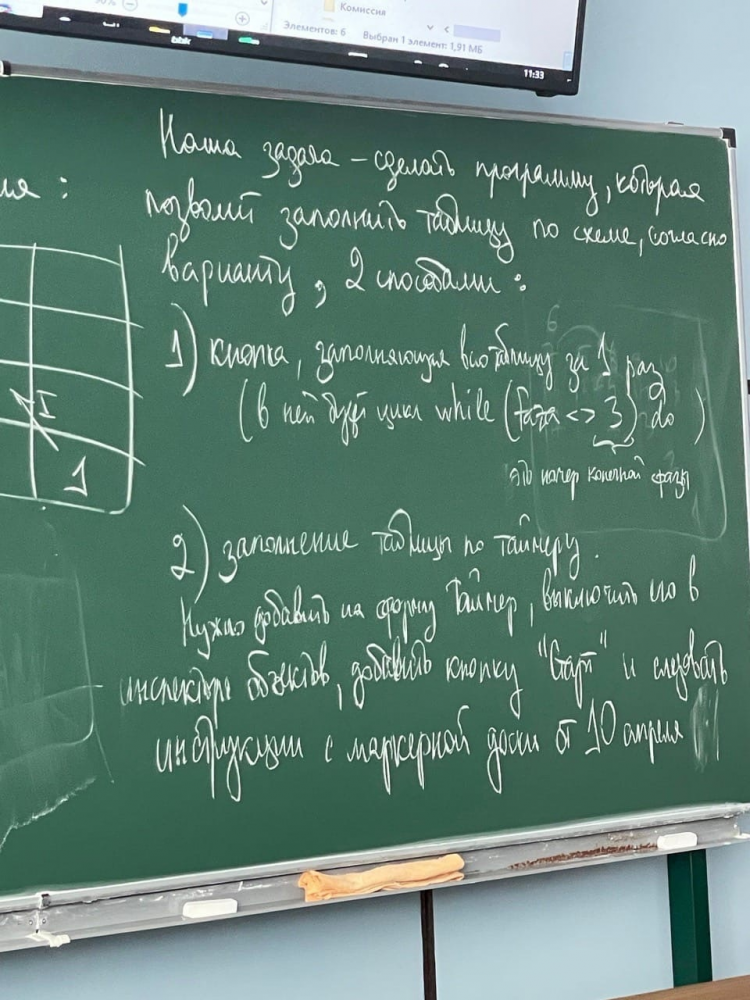 Комиссия
Элементов: 6 Выбран 1 элемент: 1,91 МБ
11:33
Наша задача – сделать программу, которая
позволит заполнить таблицу по схеме, согласно
варианту, 2 способами:
1) кнопка, заполняющая всю таблицу за 1 раз
(в ней будет цикл while (faza <> 3) do )
это номер конечной фазы
2) заполнение таблицы по таймеру.
Нужно добавить на форму Таймер, выключить его в
инспекторе объектов, добавить кнопку "Старт" и следовать
инструкции с маркерной доски от 10 апреля
I
1
6